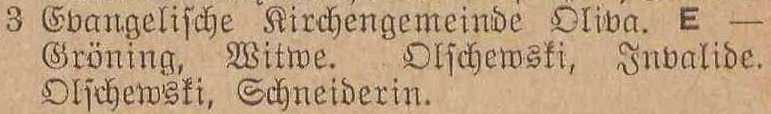 3 Evangeliſche Kirchengemeinde Oliva. E —
Gröning, Witwe. Olſchewski, Invalide.
Olſchewski, Schneiderin.